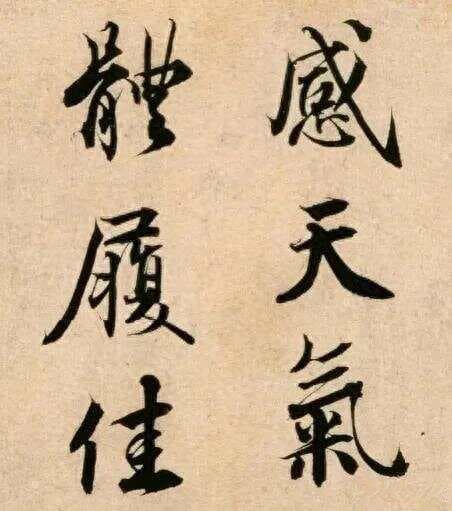 感天氣
體履佳